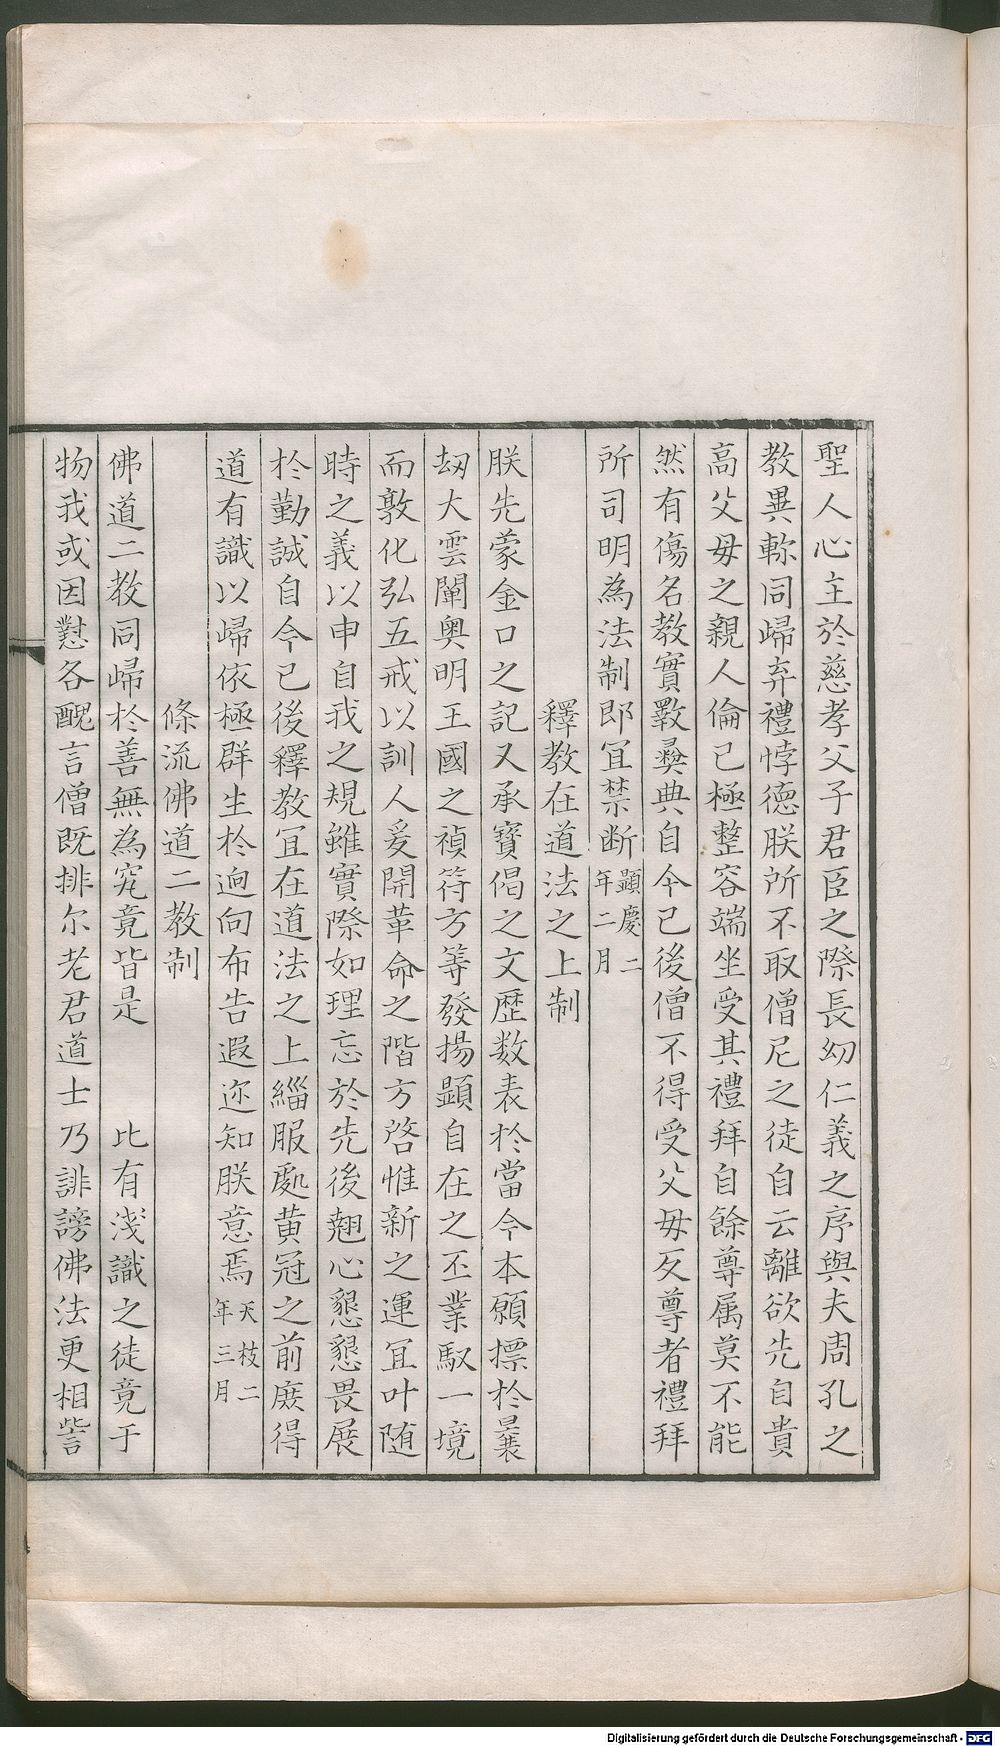 聖人心主於慈孝父子君臣之際長幼仁義之序與夫周孔之
教異轍同歸弃禮悖德朕所不取僧尼之徒自云離欲先自貴
高父母之親人倫已極整容端坐受其禮拜自餘尊属莫不能
然有傷名教實斁彞典自今已後僧不得受父母及尊者禮拜
所司明為法制即冝禁断顯慶二年二月
釋教在道法之上制
朕先蒙金口之記又承寳偈之文歴数表於當今本願摽於曩
刼大雲闡奥明王國之禎符方等發揚顯自在之丕業馭一境
而敦化弘五戒以訓人爰開革命之階方啓惟新之運冝叶随
時之義以申自我之規雖實際如理忘於先後翹心懇懇畏展
於勤誠自今已後釋教冝在道法之上緇服處黄冠之前庻得
道有識以歸依極群生於迴向布告遐迩知朕意焉天枝二年三月
條流佛道二教制
佛道二教同歸於善無為究竟皆是 比有淺識之徒竟于
物我或因懟各醜言僧既排尓老君道士乃誹謗佛法更相訾
Digitalisierung gefördert durch die Deutsche Forschungsgemeinschaft - DFG